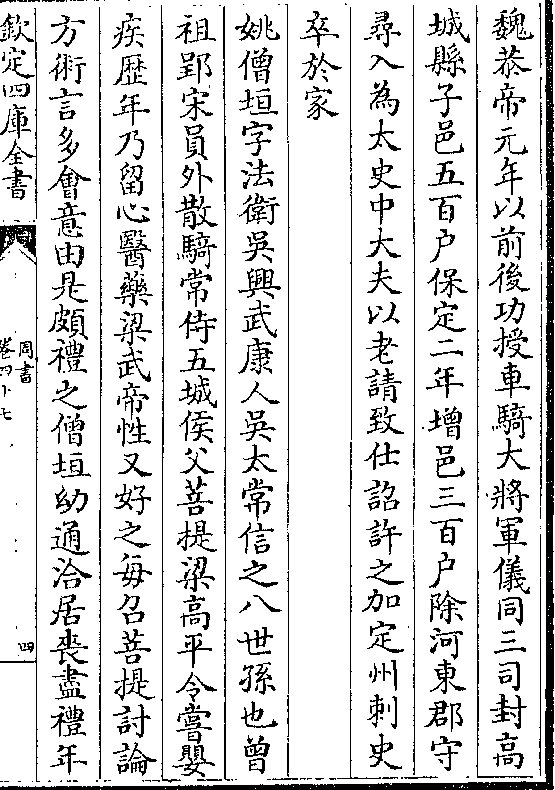 魏恭帝元年以前後功授車騎大將軍儀同三司封高
城縣子邑五百户保定二年增邑三百户除河東郡守
尋入為太史中大夫以老請致仕詔許之加定州刺史
卒於家
姚僧垣字法衛吳興武康人吳太常信之八世孫也曽
祖郢宋員外散騎常侍五城侯父菩提梁高平令嘗嬰
疾歴年乃留心醫藥梁武帝性又好之每召菩提討論
方術言多會意由是頗禮之僧垣幼通洽居喪盡禮年
欽定四庫全書
周書
卷四十七
四